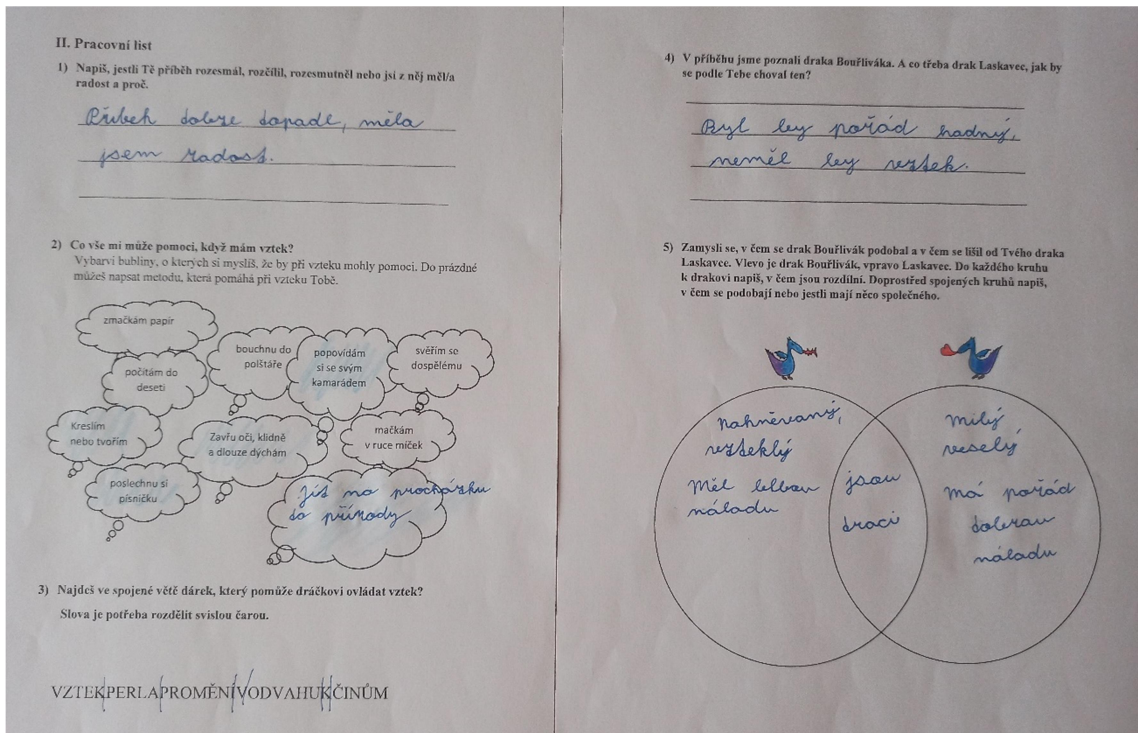 II. Pracovní list
1) Napiš, jestli Tě příběh rozesmál, rozčílil, rozesmutněl nebo jsi z něj měl/a
radost a proč.
Příbeh dobře dopadl, měla
jsem radost.
2) Co vše mi může pomoci, když mám vztek?
Vybarvi bubliny, o kterých si myslíš, že by při vzteku mohly pomoci. Do prázdné
můžeš napsat metodu, která pomáhá při vzteku Tobě.
zmačkám papír
počítám do
deseti
bouchnu do
polštáře
popovídám
si se svým
kamarádem
svěřím se
dospělému
Kreslím
nebo tvořím
Zavřu oči, klidně
a dlouze dýchám
mačkám
v ruce míček
poslechnu si
písničku
Jít na procházku
do přírody
3) Najdeš ve spojené větě dárek, který pomůže dráčkovi ovládat vztek?
Slova je potřeba rozdělit svislou čarou.
VZTEKPERLAPROMĚNÍVODVAHUKČINŮM
4) V příběhu jsme poznali draka Bouřliváka. A co třeba drak Laskavec, jak by
se podle Tebe choval ten?
Byl by pořád hodný,
neměl by vztek.
5) Zamysli se, v čem se drak Bouřlivák podobal a v čem se lišil od Tvého draka
Laskavce. Vlevo je drak Bouřlivák, vpravo Laskavec. Do každého kruhu
k drakovi napiš, v čem jsou rozdílní. Doprostřed spojených kruhů napiš,
v čem se podobají nebo jestli mají něco společného.
nahněvaný,
vzteklý
Měl blbou
náladu
jsou
draci
milý
veselý
má pořád
dobrou
náladu